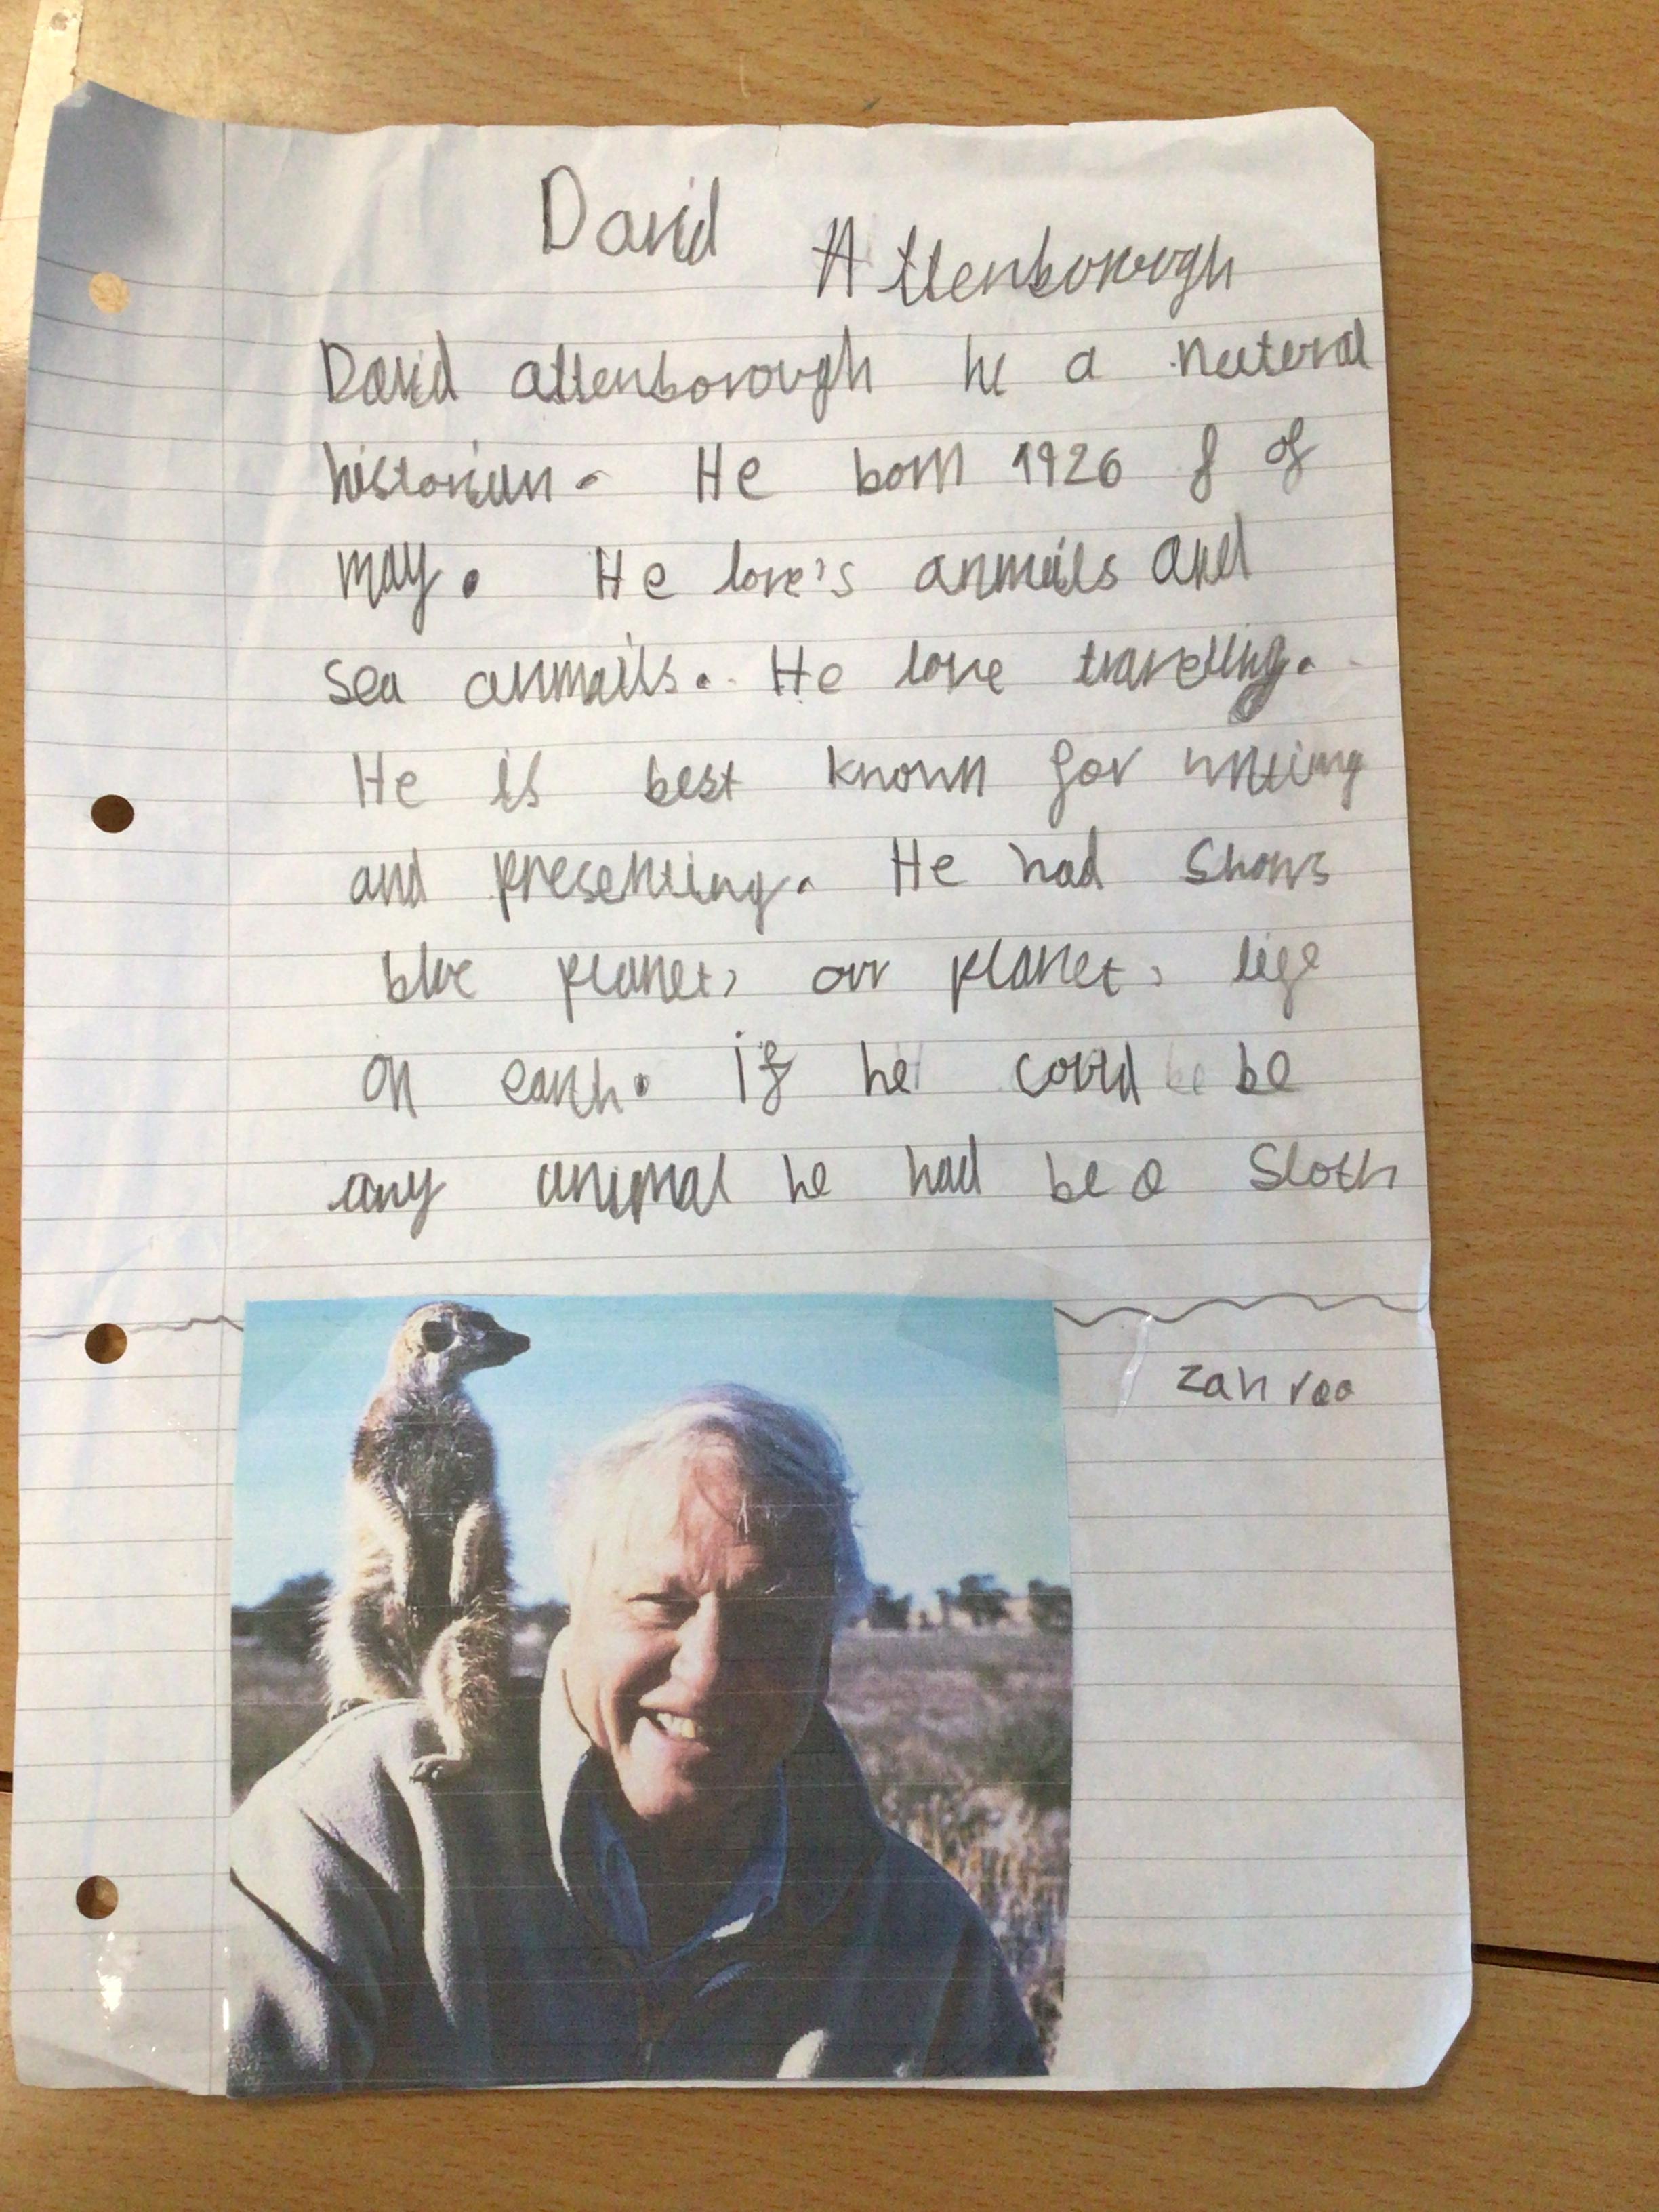 David
Attenborough
David attenborough he a neteral
historian. He born 1926 8 of
may. He love's anmails and
sea anmails. He love traveling.
He is best known for writing
and presenting. He had shows
blue planet, our planet, life
on earth. if he could be
any animal he had be a Sloth
zahraa